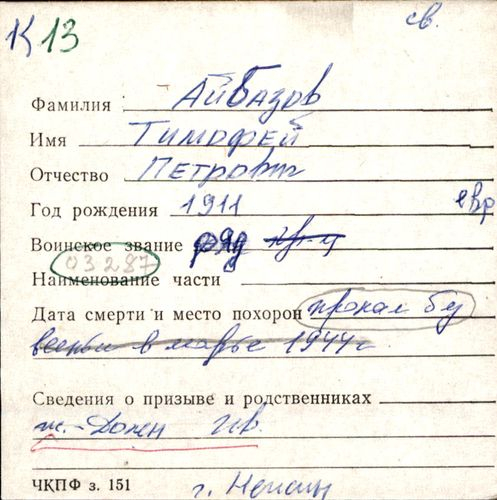 К 13 св.
Фамилия Айбазов
Имя Тимофей
Отчество Петрович
Год рождения 1911 евр
Воинское звание ряд
03287
Наименование части
Дата смерти и место похорон пропал бу
в марте 1944 г
Сведения о призыве и родственниках
ж.-
ЧКПФ з. 151 г.